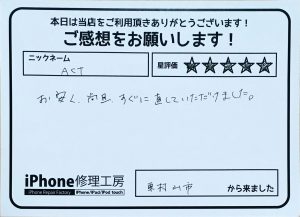 本日は当店をご利用頂きありがとうございます!
ご感想をお願いします!
ニックネーム
ACT
星評価 ★★★★★
お安く、尚且、すぐに直していただけました。
iPhone修理工房
iPhone Repair Factory iPhone/iPad/iPod touch
東村山市 から来ました